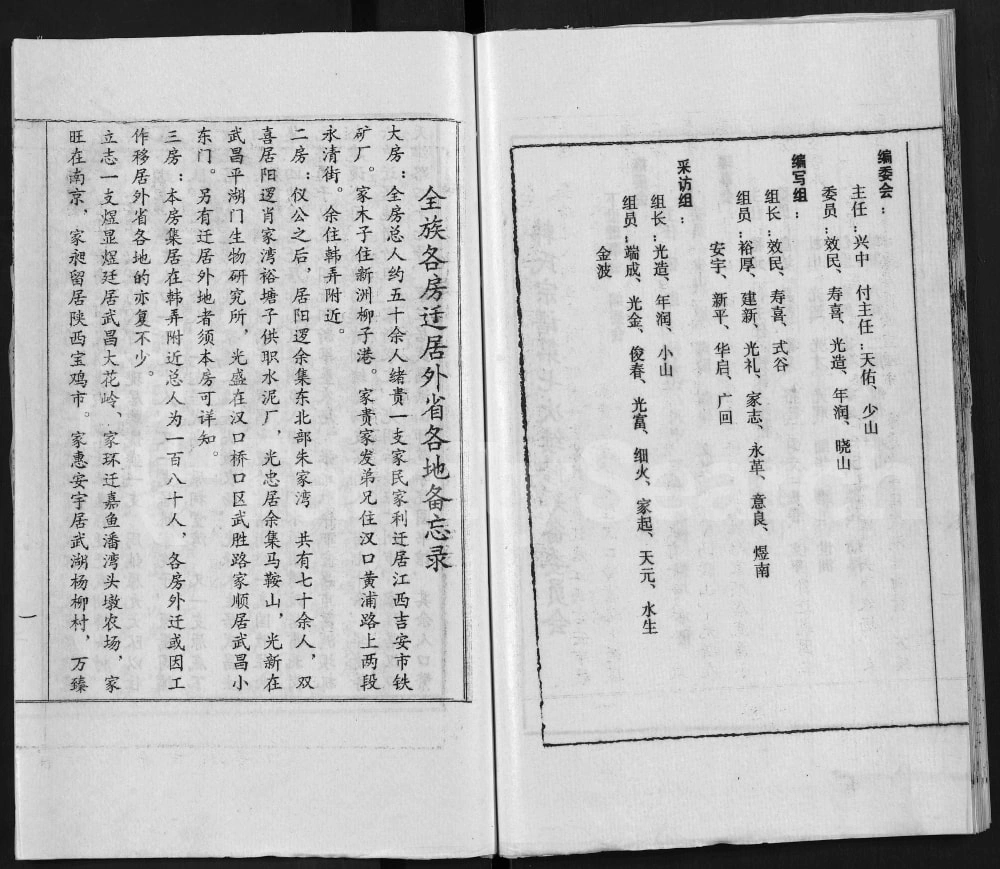 编委会：
主任：兴中 付主任：天佑、少山
委员：效民、寿喜、光造、年润、晓山
编写组：
组长：效民、寿喜、式谷
组员：裕厚、建新、光礼、家志、永革、意良、煜南
安宇、新平、华启、广回
采访组：
组长：光造、年润、小山
组员：端成、光金、俊春、光富、细火、家起、天元、水生
金波
全族各房迁居外省各地备忘录
大房：全房总人约五十余人绪贵一支家民家利迁居江西吉安市铁
矿厂。家木子住新洲柳子港。家贵家发弟兄住汉口黄浦路上两段
永清街。余住韩弄附近。
二房：仪公之后，居阳逻余集东北部朱家湾 共有七十余人，双
喜居阳逻肖家湾裕塘子供职水泥厂，光忠居余集马鞍山，光新在
武昌平湖门生物研究所，光盛在汉口桥口区武胜路家顺居武昌小
东门。另有迁居外地者须本房可详知。
三房：本房集居在韩弄附近总人为一百八十人，各房外迁或因工
作移居外省各地的亦复不少。
立志一支煜显煜廷居武昌大花岭、家环迁嘉鱼潘湾头墩农场，家
旺在南京，家昶留居陕西宝鸡市。家惠安宇居武湖杨柳村，万臻
一